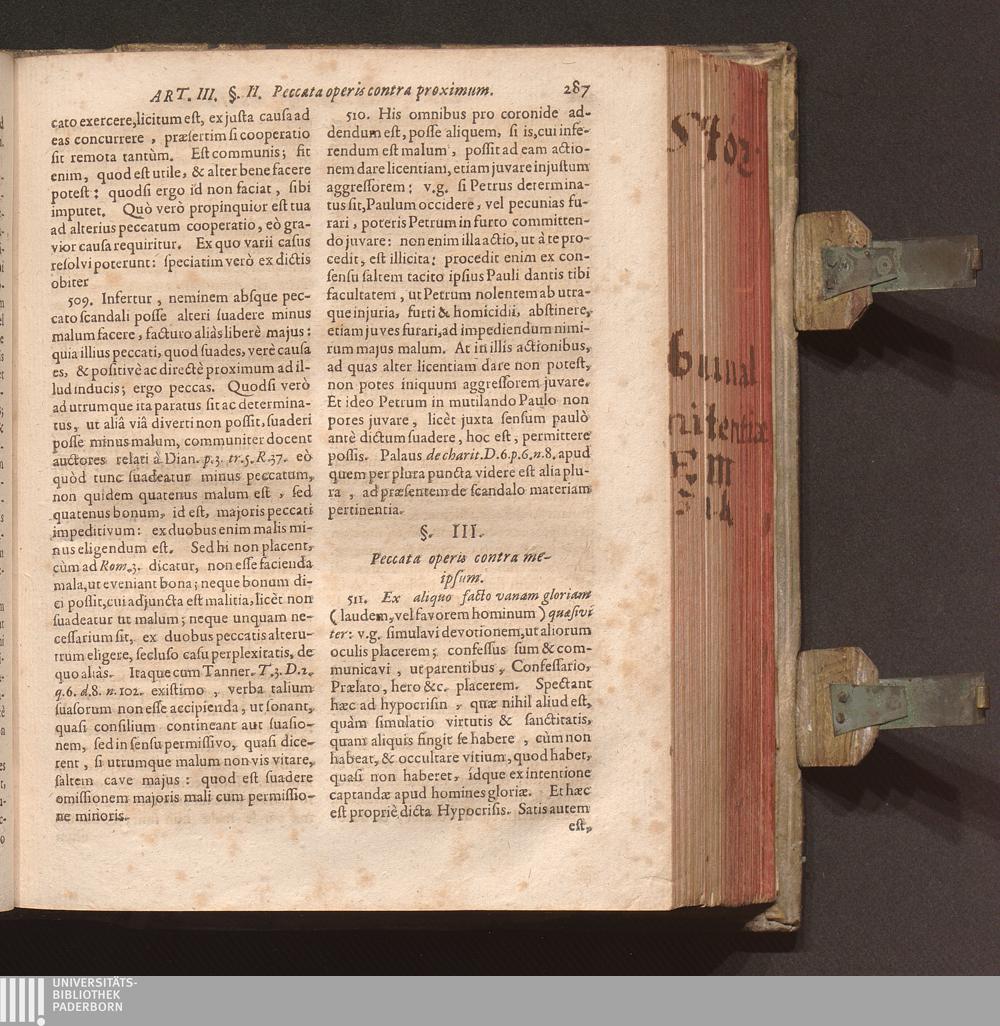 ART. III. §. II. Peccata operis contra proximum. 287
cato exercere, licitum est, ex justa causa ad
eas concurrere, præsertim si cooperatio
sit remota tantùm. Est communis; sit
enim, quod est utile, & alter bene facere
potest: quodsi ergo id non faciat, sibi
imputet. Quò verò propinquior est tua
ad alterius peccatum cooperatio, eò gra-
vior causa requiritur. Ex quo varii casus
resolvi poterunt: speciatim verò ex dictis
obiter
509. Infertur, neminem absque pec-
cato scandali posse alteri suadere minus
malum facere, facturo aliàs liberè majus:
quia illius peccati, quod suades, verè causa
es, & positivè ac directè proximum ad il-
lud inducis; ergo peccas. Quodsi verò
ad utrumque ita paratus sit ac determina-
tus, ut aliâ viâ diverti non possit, suaderi
posse minus malum, communiter docent
auctores relati à Dian. p.3. tr.5. R.37. eò
quòd tunc suadeatur minus peccatum,
non quidem quatenus malum est, sed
quatenus bonum, id est, majoris peccati
impeditivum: ex duobus enim malis mi-
nus eligendum est. Sed hi non placent,
cùm ad Rom.3. dicatur, non esse facienda
mala, ut eveniant bona; neque bonum di-
ci possit, cui adjuncta est malitia, licèt non
suadeatur ut malum; neque unquam ne-
cessarium sit, ex duobus peccatis alteru-
trum eligere, secluso casu perplexitatis, de
quo aliàs. Itaque cum Tanner. T.3. D.2.
q.6. d.8. n.102. existimo, verba talium
suasorum non esse accipienda, ut sonant,
quasi consilium contineant aut suasio-
nem, sed in sensu permissivo, quasi dice-
rent, si utrumque malum non vis vitare,
saltem cave majus: quod est suadere
omissionem majoris mali cum permissio-
ne minoris.
510. His omnibus pro coronide ad-
dendum est, posse aliquem, si is, cui infe-
rendum est malum, possit ad eam actio-
nem dare licentiam, etiam juvare injustum
aggressorem: v.g. si Petrus determina-
tus sit, Paulum occidere, vel pecunias fu-
rari, poteris Petrum in furto committen-
do juvare: non enim illa actio, ut à te pro-
cedit, est illicita: procedit enim ex con-
sensu saltem tacito ipsius Pauli dantis tibi
facultatem, ut Petrum nolentem ab utra-
que injuria, furti & homicidii, abstinere,
etiam juves furari, ad impediendum nimi-
rum majus malum. At in illis actionibus,
ad quas alter licentiam dare non potest,
non potes iniquum aggressorem juvare.
Et ideo Petrum in mutilando Paulo non
potes juvare, licèt juxta sensum paulò
antè dictum suadere, hoc est, permittere
possis. Palaus de charit. D.6. p.6. n.8. apud
quem per plura puncta videre est alia plu-
ra, ad præsentem de scandalo materiam
pertinentia.
§. III.
Peccata operis contra me-
ipsum.
511. Ex aliquo facto vanam gloriam
(laudem, vel favorem hominum) quæsivi
ter: v.g. simulavi devotionem, ut aliorum
oculis placerem; confessus sum & com-
municavi, ut parentibus, Confessario,
Prælato, hero &c. placerem. Spectant
hæc ad hypocrisin, quæ nihil aliud est,
quàm simulatio virtutis & sanctitatis,
quam aliquis fingit se habere, cùm non
habeat, & occultare vitium, quod habet,
quasi non haberet, idque ex intentione
captandæ apud homines gloriæ. Et hæc
est propriè dicta Hypocrisis. Satis autem
est,
UNIVERSITÄTS-
BIBLIOTHEK
PADERBORN